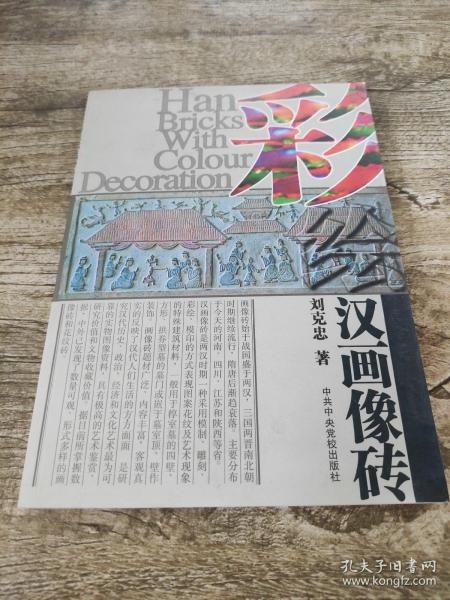 Han
Bricks
With
Colour
Decoration
彩绘
汉画像砖
刘克忠 著
中共中央党校出版社
画像砖始于战国盛于两汉，三国两晋南北朝
时期继续流行，隋唐后渐趋衰落，主要分布
于今天的河南、四川、江苏和陕西等省。
汉画像砖是两汉时期一种采用模制、雕刻、
彩绘、模印的方式表现图案花纹及艺术现象
的特殊建筑材料，一般用于椁室墓的四壁、
方形、拱券型墓的墓门或嵌于墓室面、壁作
装饰。画像砖题材广泛，内容丰富，客观真
实的反映了汉代人们生活的方方面面，是研
究汉代历史、政治、经济和文化艺术最为可
靠的实物图像资料，具有极高的艺术鉴赏、
研究价值和文物收藏价值。据目前所掌握数
据，中州已发现了数量可观、形式多样的画
像砖和花纹砖。
孔夫子旧书网
www.kongfz.com